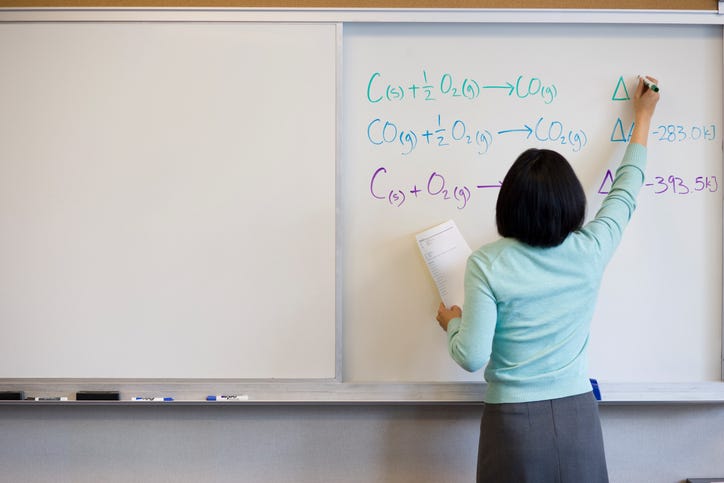 C(s) + 1/2 O₂(g) → CO(g) Δ
CO(g) + 1/2 O₂(g) → CO₂(g) Δ -283.0kJ
C(s) + O₂(g) → Δ -393.5kJ